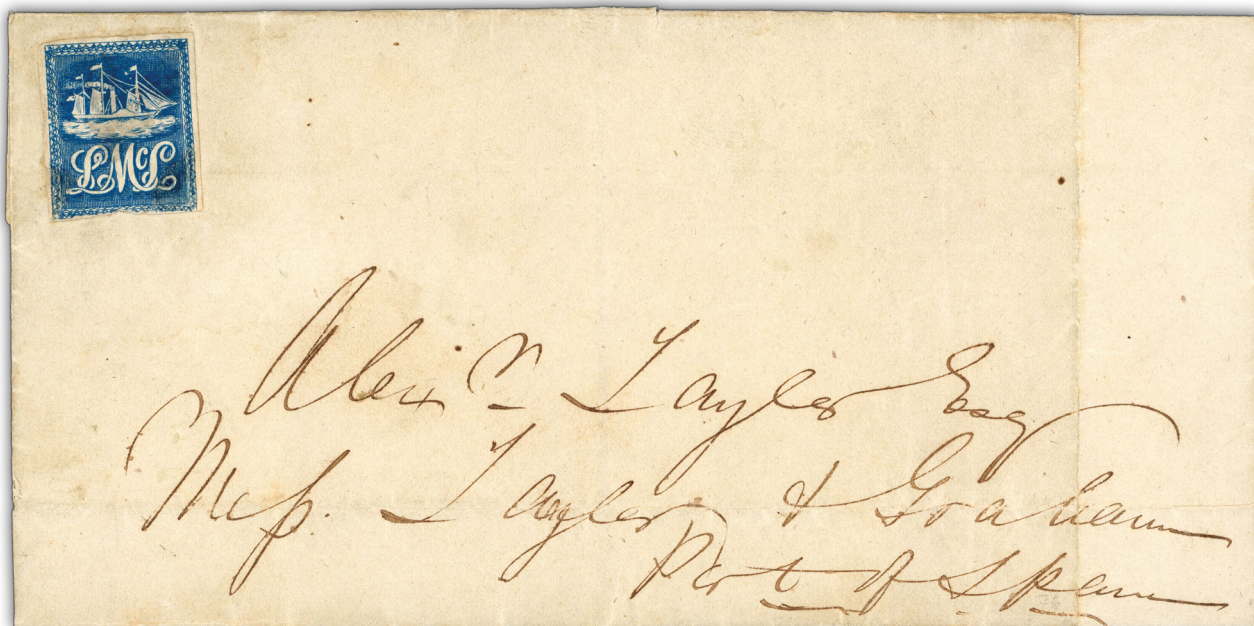 LMcL
Alexr Taylor Esq
Mess. Taylor & Graham
Port of Spain